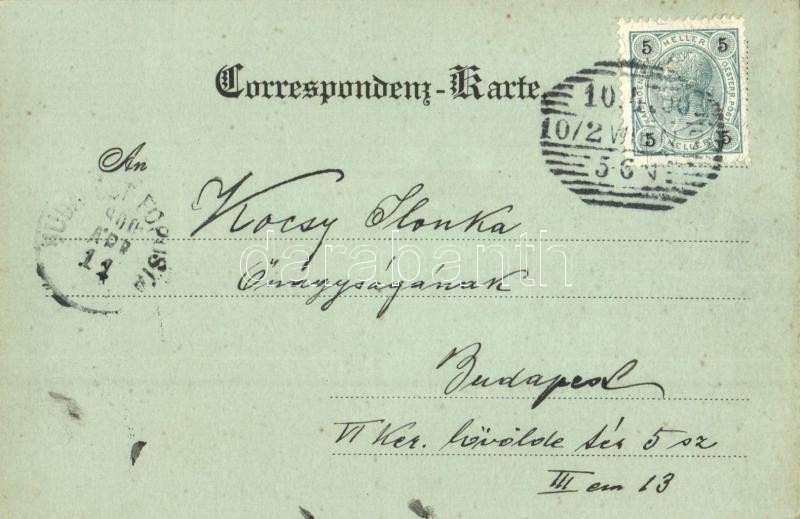 5 HELLER 5
OESTERR. POST
5 HELLER 5
Correspondenz-Karte.
10/2 W
5-6 V
An
Kocsy Ilonka
BUDAPEST FŐPOSTA
900
APR
11
Őnagyságának
darabanth
Budapest
VI Ker. lövölde tér 5 sz
III em 13